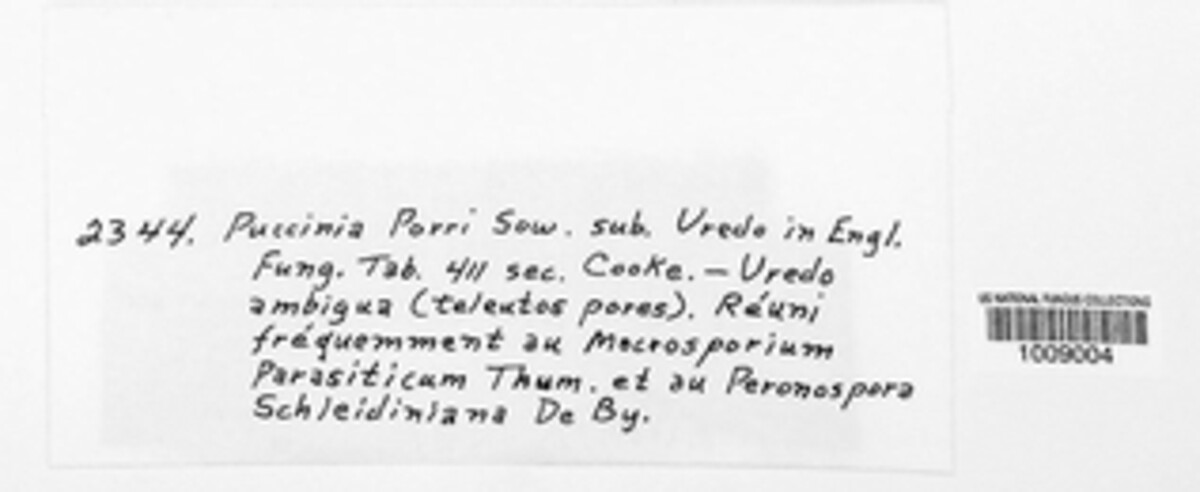 2344. Puccinia Porri Sow. sub. Uredo in Engl.
Fung. Tab. 411 sec. Cooke. — Uredo
ambigua (teleutos pores). Réuni
fréquemment au Macrosporium
Parasiticum Thum. et au Peronospora
Schleidiniana De By.
US NATIONAL FUNGUS COLLECTIONS
1009004